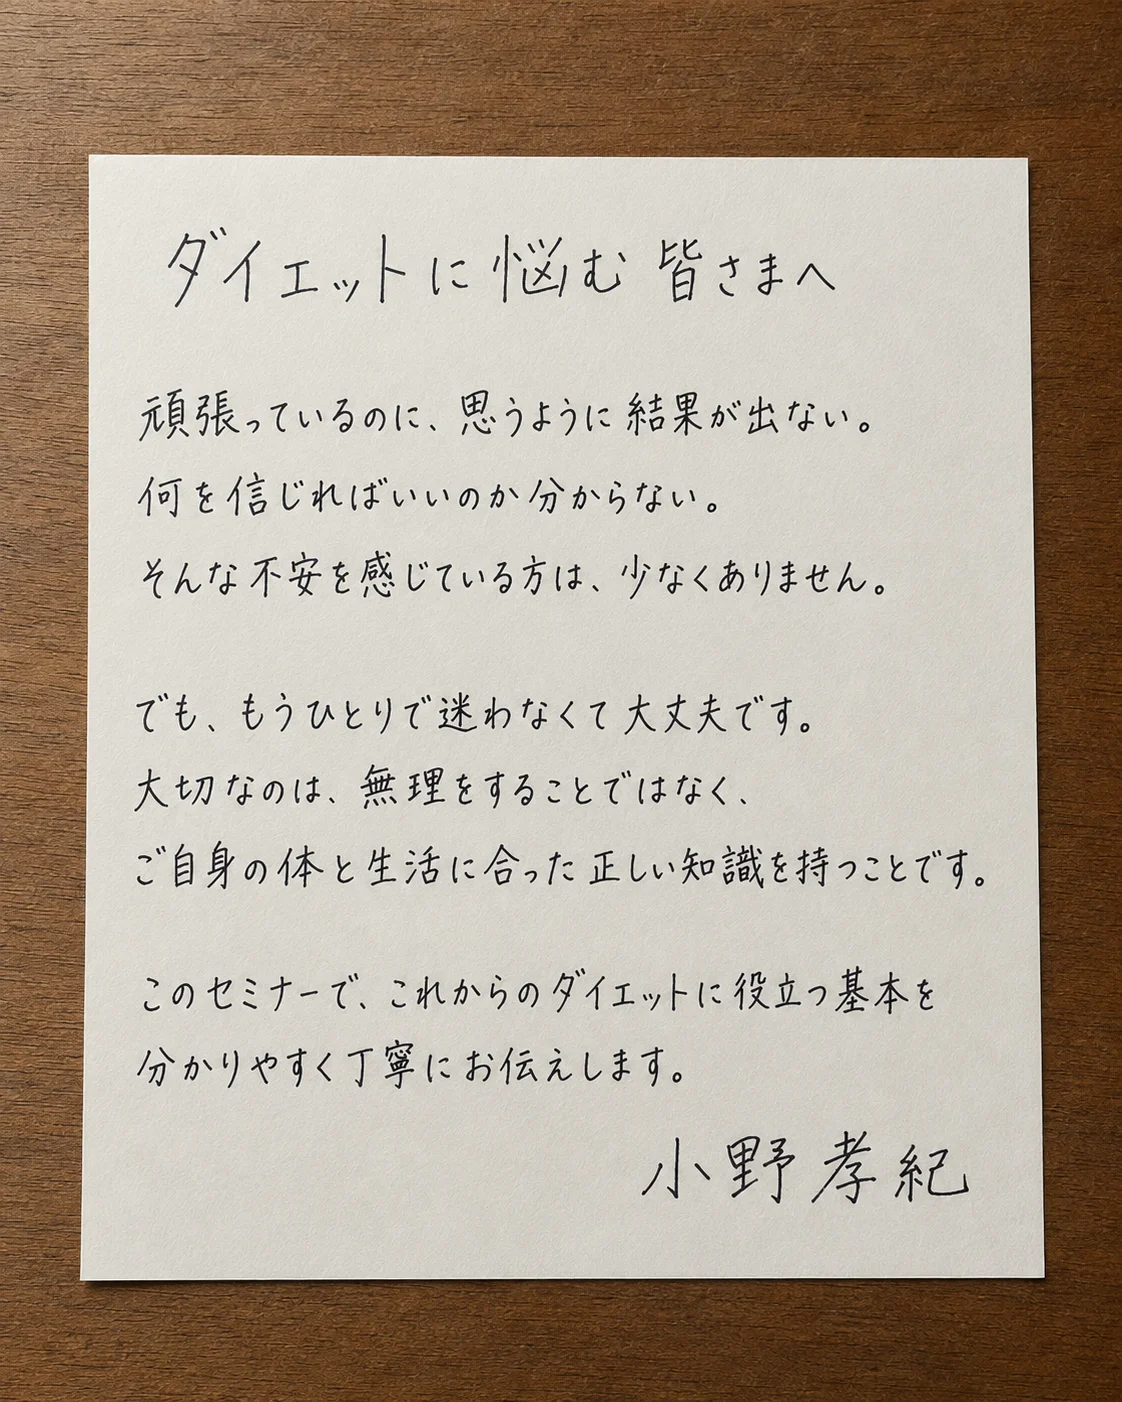 ダイエットに悩む皆さまへ
頑張っているのに、思うように結果が出ない。
何を信じればいいのか分からない。
そんな不安を感じている方は、少なくありません。
でも、もうひとりで迷わなくて大丈夫です。
大切なのは、無理をすることではなく、
ご自身の体と生活に合った正しい知識を持つことです。
このセミナーで、これからのダイエットに役立つ基本を
分かりやすく丁寧にお伝えします。
小野孝紀